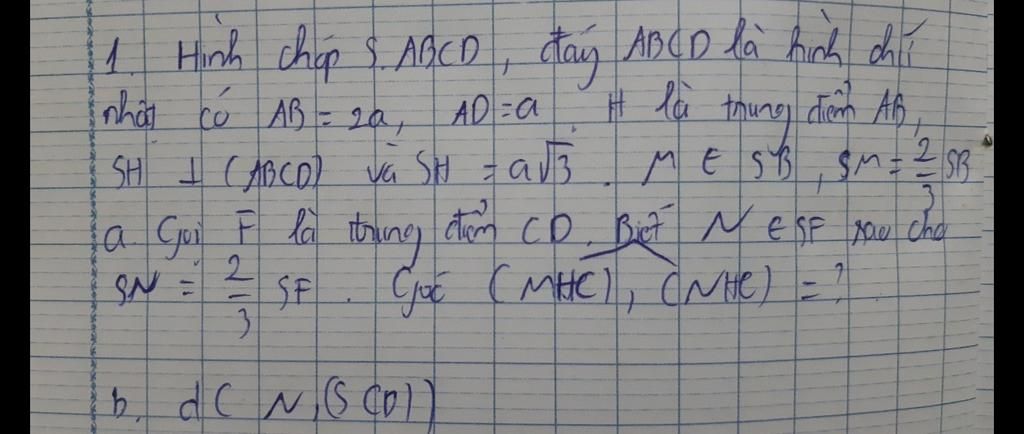 1. Hình chóp S.ABCD, đáy ABCD là hình chữ
nhật có AB = 2a, AD = a H là trung điểm AB,
SH ⊥ (ABCD) và SH = a√3. M ∈ SB, SM = 2/3 SB
a. Gọi F là trung điểm CD. Biết N ∈ SF sao cho
SN = 2/3 SF. Góc (MHC), (NHC) = ?
b. d( N, (SCD))